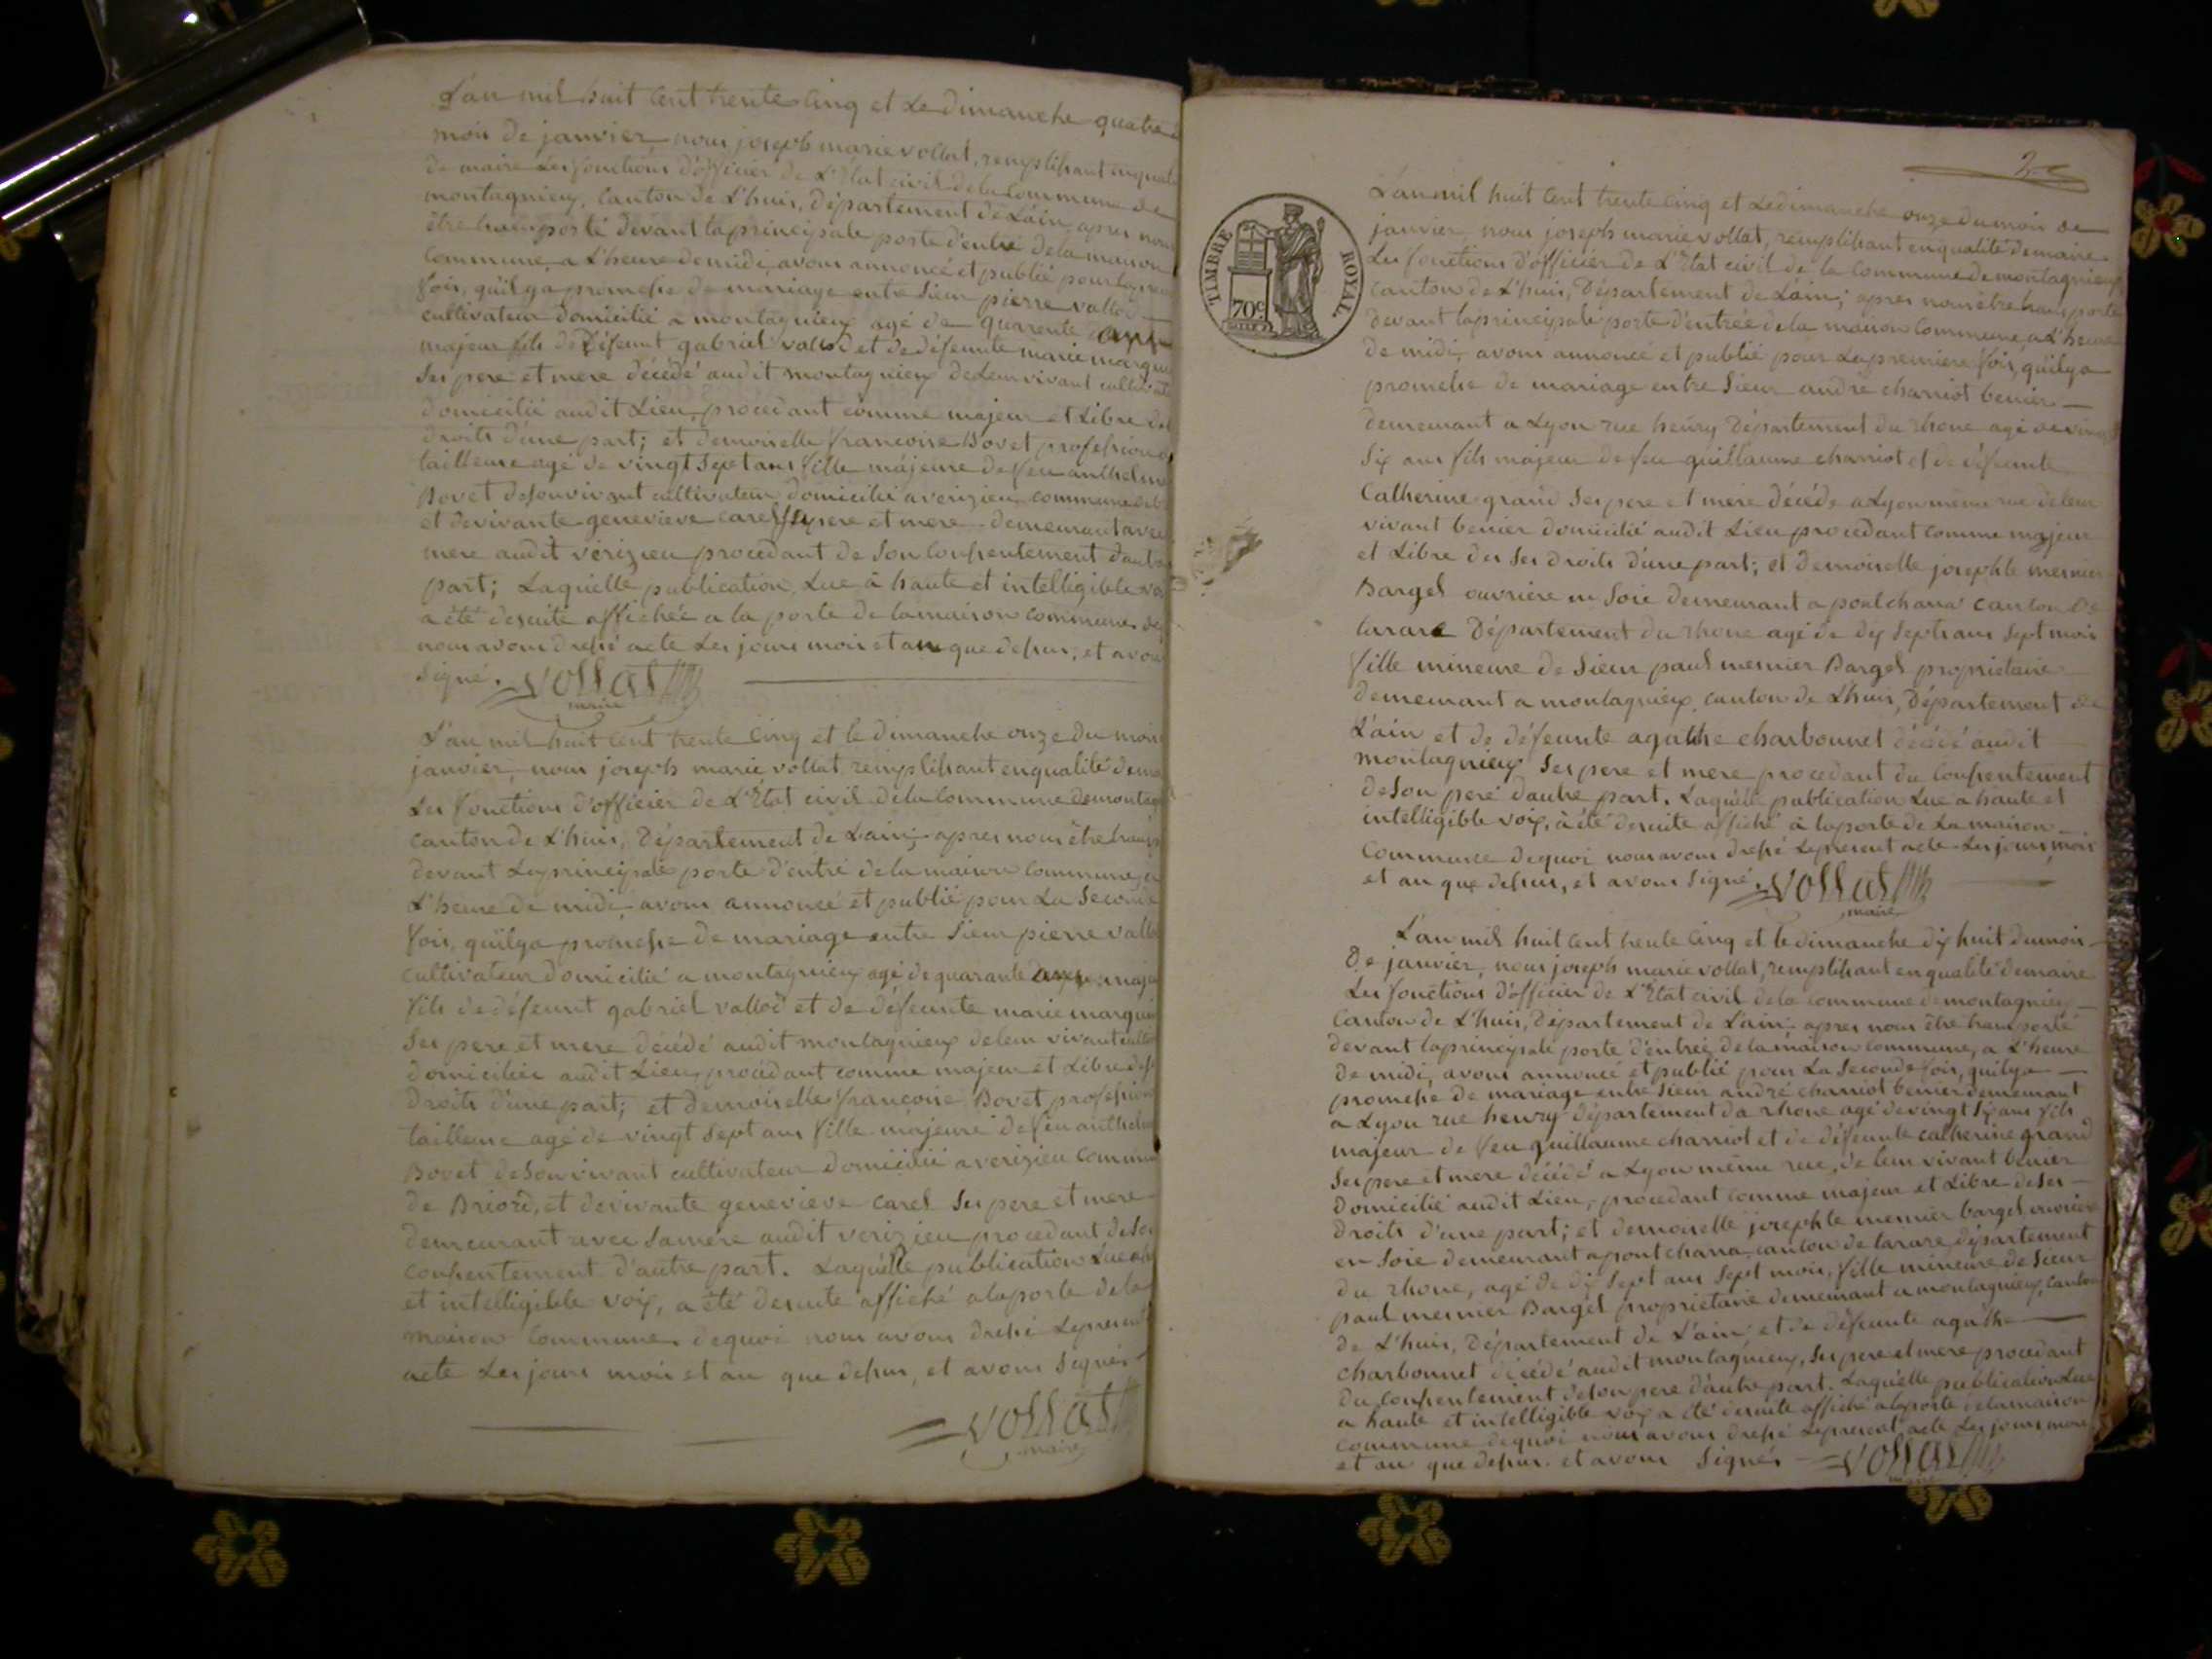 L'an mil huit cent trente cinq et Le dimanche quatre
mois de janvier, nous joseph marie vollat, remplissant enqualité
de maire Les fonctions d'officier de L'Etat civil de la Commune de
montagnieux, Canton de L'huis, Département de L'ain, apres nous
être transporté devant la principale porte d'entré de la maison
Commune, a L'heure de midi, avons annoncé et publié pour la premiere
fois, qu'il y a promesse de mariage entre Sieur pierre vallod
cultivateur domicilié a montagnieux agé de quarente ans
majeur fils de Défeunt gabriel vallod et de défeunte marie
Ses pere et mere décédé audit montagnieux de Leur vivant
domicilié audit Lieu, procedant comme majeur et Libre de
droits d'une part; et demoiselle francoise Bovet profession
tailleuse agé de vingt Sept ans fille majeure de feu anthelme
Bovet de Son vivant cultivateur domicilié a verizieu commune
et de vivante genevieve carel Ses pere et mere demeurant avec
mere audit verizieu procedant de Son Consentement d'autre
part; Laquelle publication Lue à haute et intelligible voix
a été desuite affichée a la porte de la maison commune de
nous avons dressé acte Les jours mois et an que dessus, et avons
Signé. Vollat
maire
L'an mil huit cent trente Cinq et le dimanche onze du mois
janvier, nous joseph marie vollat, remplissant enqualité de
Les fonctions d'officier de L'Etat civil de la Commune de
canton de L'huis, Département de L'ain; apres nous être
devant La principale porte d'entré de la maison Commune, a
L'heure de midi, avons annoncé et publié pour La Seconde
fois, qu'il y a promesse de mariage entre Sieur pierre
cultivateur domicilié a montagnieux agé de quarante ans
fils de défeunt gabriel vallod et de défeunte marie
Ses pere et mere décédé audit montagnieux de leur vivant
domiciliée audit Lieu, procédant comme majeur et Libre de
droits d'une part; et demoiselle francoise Bovet profession
tailleuse agé de vingt Sept ans fille majeure de feu
Bovet de Son vivant cultivateur domicilié a verizieu
de Briord, et de vivante genevieve carel Ses pere et mere
demeurant avec Samere audit verizieu procedant de
consentement d'autre part. Laquelle publication Lue a
et intelligible voix, a été desuite affiché a la porte de la
maison Commune. dequoi nous avons dressé Le present
acte Les jours mois et an que dessus, et avons Signés
Vollat
maire
2
TIMBRE ROYAL
70c
L'an mil huit Cent trente cinq et Le dimanche onze du mois de
janvier, nous joseph marie vollat, remplissant enqualité demaire
Les fonctions d'officier de L'Etat civil de la Commune de montagnieux
canton de L'huis, Département de L'ain; apres nous être transporté
devant la principale porte d'entrée de la maison Commune, a L'heure
de midi, avons annoncé et publié pour La premiere fois, qu'il y a
promesse de mariage entre Sieur andré charriot
demeurant a Lyon rue henry Département du rhone agé de vingt
Six ans fils majeur de feu guillaume charriot et de défeunte
Catherine grand Ses pere et mere décédé a Lyon même rue de leur
vivant domicilié audit Lieu procedant comme majeur
et Libre de Ses droits d'une part; et demoiselle josephte mesnier
Bargel ouvriere en Soie demeurant a pontchara canton de
tarare Département du rhone agé de dix Sept ans Sept mois
fille mineure de Sieur paul mesnier Bargel proprietaire
demeurant a montagnieux, canton de L'huis, Département de
L'ain et de défeunte agathe charbonnet décédé audit
montagnieux Ses pere et mere procedant du Consentement
de Son pere d'autre part. Laquelle publication Lue a haute et
intelligible voix, à été desuite affiché à la porte de La maison
Commune dequoi nous avons dressé Le present acte Les jours, mois
et an que dessus, et avons Signé. Vollat
maire
L'an mil huit Cent trente Cinq et le dimanche dix huit du mois
de janvier, nous joseph marie vollat, remplissant en qualité demaire
Les fonctions d'officier de L'Etat civil de la commune de montagnieux
Canton de L'huis, Département de L'ain; apres nous être transporté
devant la principale porte d'entrée de la maison commune, a L'heure
de midi, avons annoncé et publié pour La Seconde fois, qu'il y a
promesse de mariage entre Sieur andré charriot demeurant
a Lyon rue henry département du rhone agé de vingt Six ans fils
majeur de feu guillaume charriot et de défeunte catherine grand
Ses pere et mere décédé a Lyon même rue, de leur vivant
domicilié audit Lieu, procedant comme majeur et Libre de Ses
droits d'une part; et demoiselle josephte mesnier bargel ouvriere
en Soie demeurant a pontchara, canton de tarare, département
du rhone, agé de dix Sept ans Sept mois, fille mineure de Sieur
paul mesnier Bargel proprietaire demeurant a montagnieux, canton
de L'huis, Département de L'ain et de défeunte agathe
charbonnet décédé audit montagnieux, Ses pere et mere procedant
du consentement de Son pere d'autre part. Laquelle publication Lue
a haute et intelligible voix a été desuite affiché a la porte de la maison
commune dequoi nous avons dressé Le present acte Les jours mois
et an que dessus. et avons Signés Vollat
maire